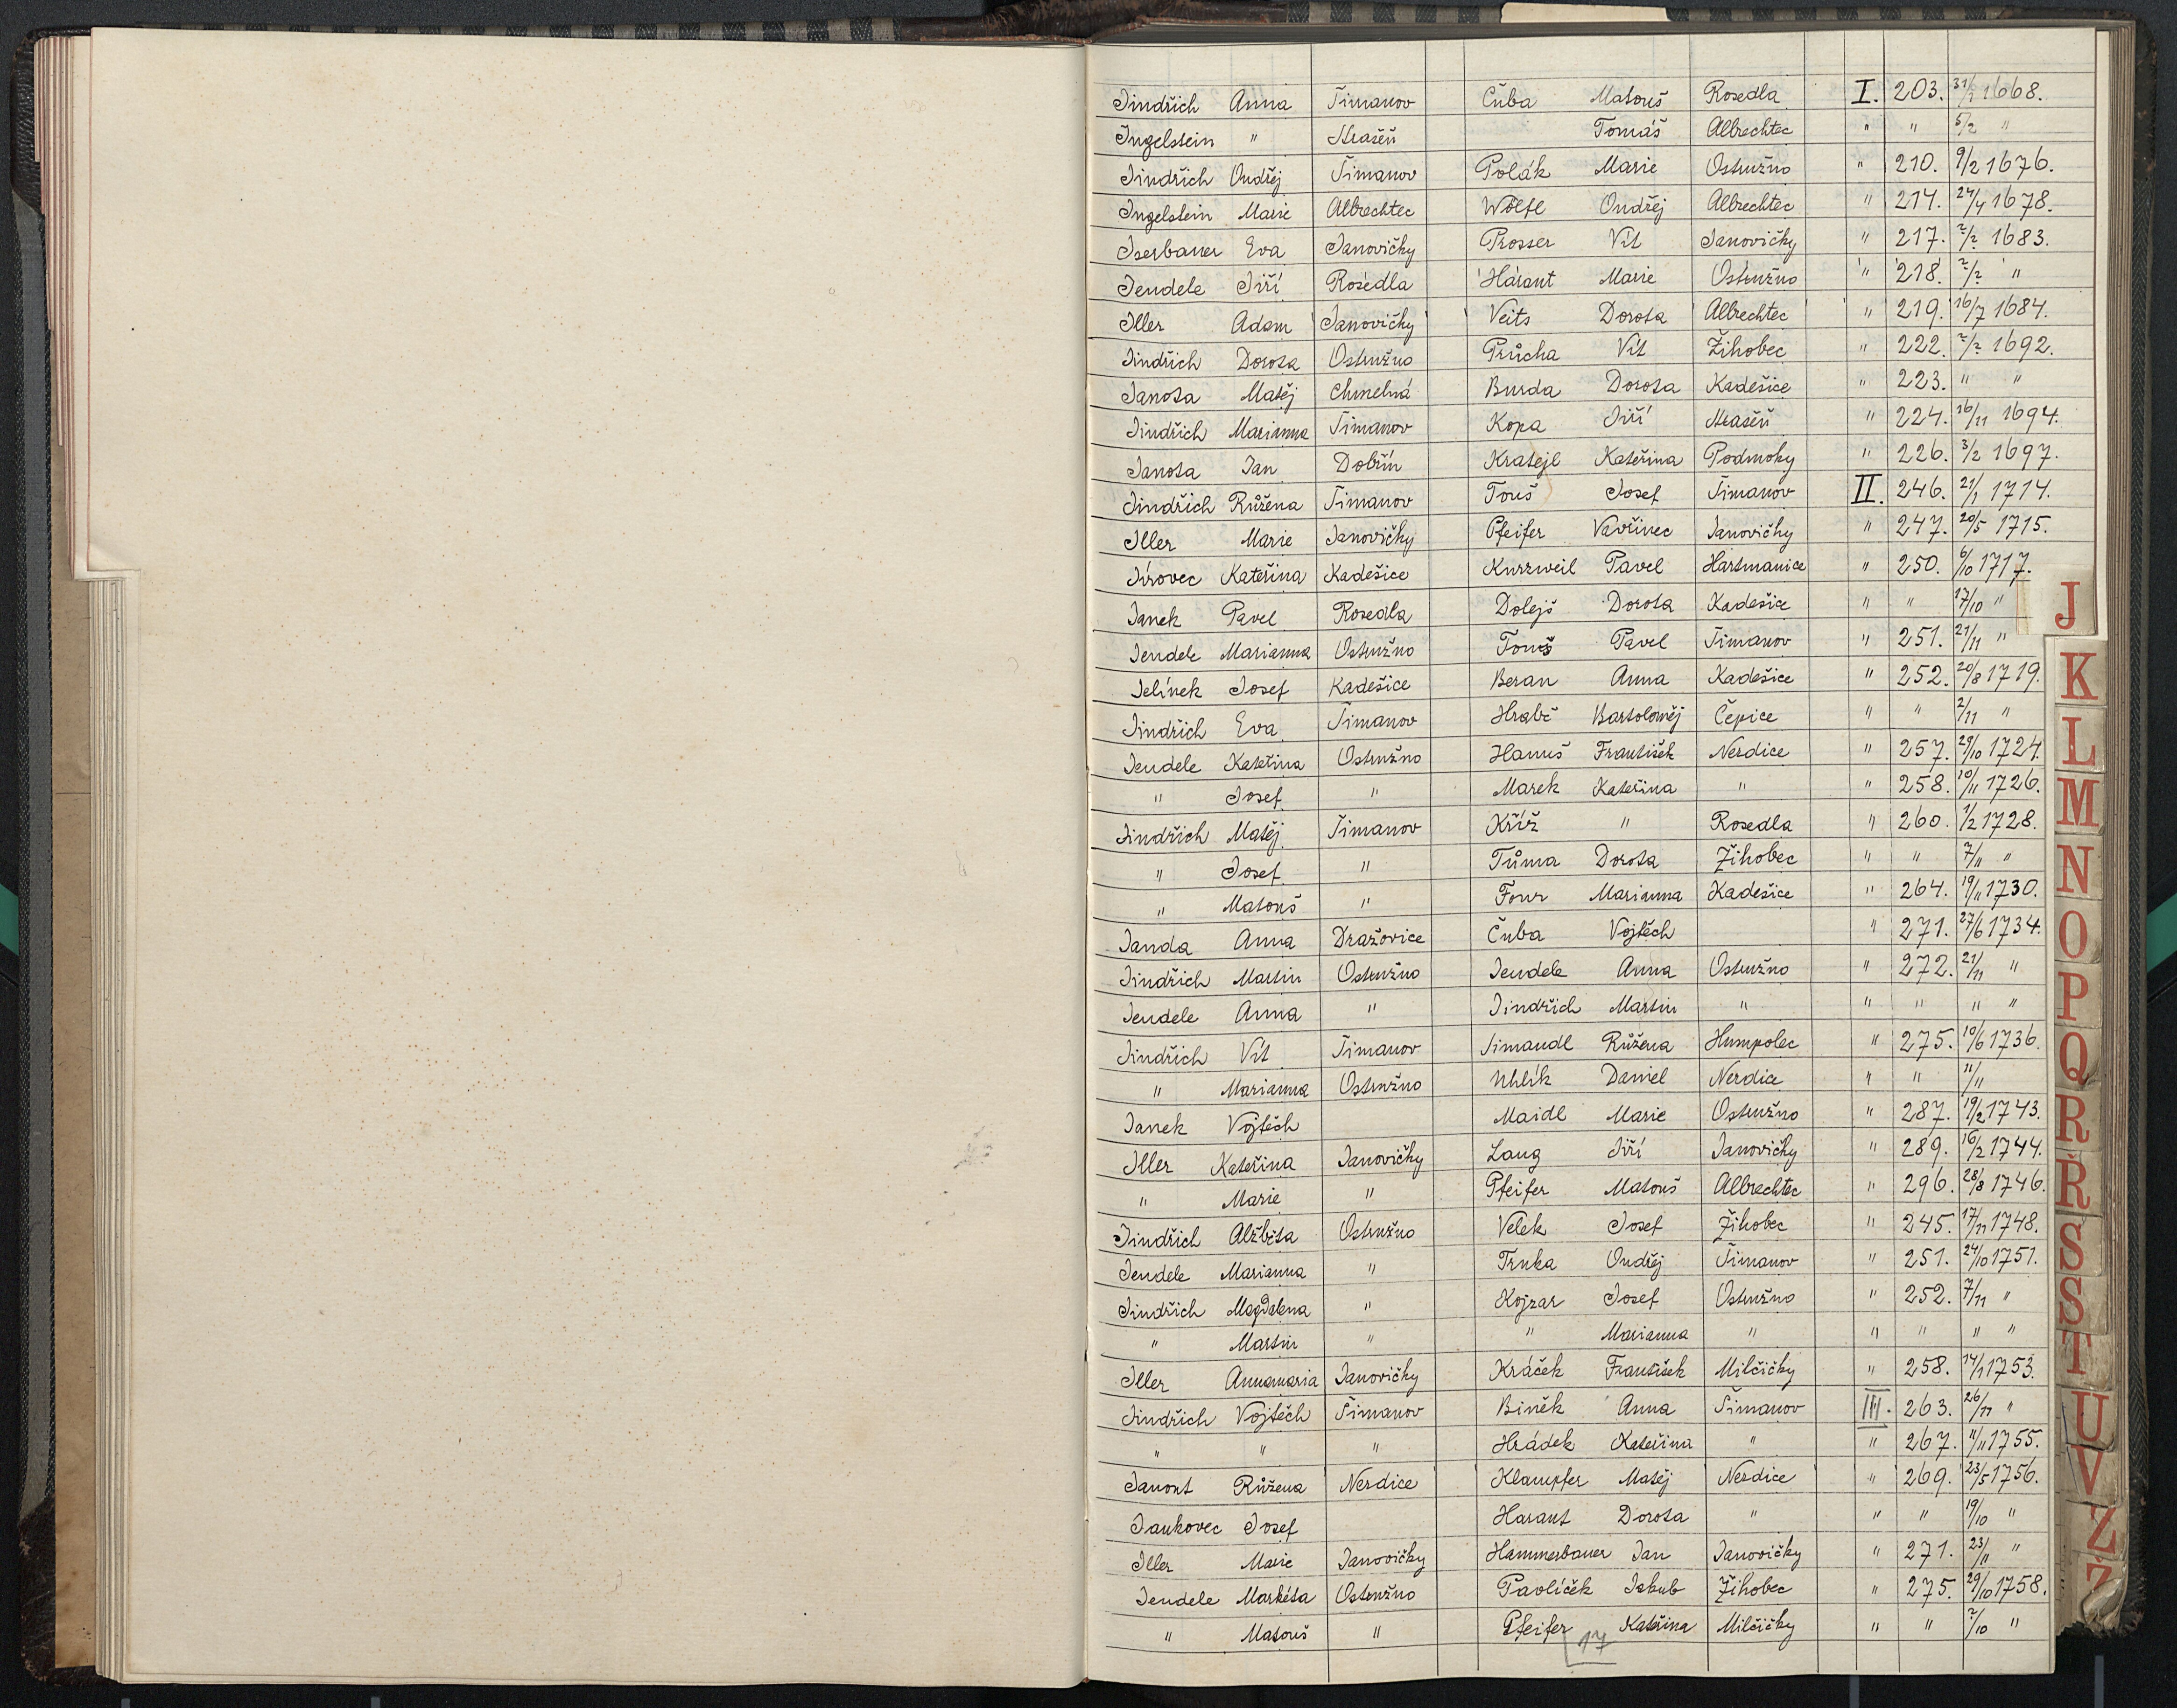 Jindřich Anna Šimanov Čuba Matouš Rosedla I. 203. 31/1 1668.
Ingelstein " Strašeň Tomáš Albrechtec " " 5/2 "
Jindřich Ondřej Šimanov Polák Marie Ostružno " 210. 9/2 1676.
Ingelstein Marie Albrechtec Wölfl Ondřej Albrechtec " 214. 24/4 1678.
Iserbauer Eva Janovičky Prosser Vít Janovičky " 217. ?/? 1683.
Jendele Jiří Rosedla Harant Marie Ostružno " 218. ?/? "
Iller Adam Janovičky Veits Dorota Albrechtec " 219. 16/7 1684.
Jindřich Dorota Ostružno Průcha Vít Žihobec " 222. ?/? 1692.
Janota Matěj Chmelná Burda Dorota Kadešice " 223. " "
Jindřich Marianna Šimanov Kopa Jiří Strašeň " 224. 16/11 1694.
Janota Jan Dobřín Kratejl Kateřina Podmoky " 226. 3/2 1697.
Jindřich Růžena Šimanov Touš Josef Šimanov II. 246. 21/1 1714.
Iller Marie Janovičky Pfeifer Vavřinec Janovičky " 247. 20/5 1715.
Jírovec Kateřina Kadešice Kurzweil Pavel Hartmanice " 250. 6/10 1717.
Janek Pavel Rosedla Dolejš Dorota Kadešice " " 17/10 "
Jendele Marianna Ostružno Touš Pavel Šimanov " 251. 21/11 "
Jelínek Josef Kadešice Beran Anna Kadešice " 252. 20/8 1719.
Jindřich Eva Šimanov Hrabě Bartoloměj Čepice " " 2/11 "
Jendele Kateřina Ostružno Hanuš František Nezdice " 257. 29/10 1724.
" Josef " Marek Kateřina " " 258. 10/11 1726.
Jindřich Matěj Šimanov Kříž " Rosedla " 260. 1/2 1728.
" Josef " Tůma Dorota Žihobec " " 7/11 "
" Matouš " Four Marianna Kadešice " 264. 19/11 1730.
Janda Anna Dražovice Čuba Vojtěch " 271. 27/6 1734.
Jindřich Martin Ostružno Jendele Anna Ostružno " 272. 21/11 "
Jendele Anna " Jindřich Martin " " " " "
Jindřich Vít Šimanov Simandl Růžena Humpolec " 275. 10/6 1736.
" Marianna Ostružno Uhlík Daniel Nezdice " " 11/11
Janek Vojtěch Maidl Marie Ostružno " 287. 19/2 1743.
Iller Kateřina Janovičky Lang Jiří Janovičky " 289. 16/2 1744.
" Marie " Pfeifer Matouš Albrechtec " 296. 28/8 1746.
Jindřich Alžběta Ostružno Velek Josef Žihobec " 245. 17/11 1748.
Jendele Marianna " Trnka Ondřej Šimanov " 251. 24/10 1751.
Jindřich Magdalena " Kojzar Josef Ostružno " 252. 7/11 "
" Martin " " Marianna " " " " "
Iller Annamaria Janovičky Kráček František Milčičky " 258. 14/1 1753.
Jindřich Vojtěch Šimanov Biněk Anna Šimanov III. 263. 26/11 "
" " " Hrádek Kateřina " " 267. 11/11 1755.
Janout Růžena Nezdice Klampfer Matěj Nezdice " 269. 23/5 1756.
Jankovec Josef Harant Dorota " " " 19/10 "
Iller Marie Janovičky Hammerbauer Jan Janovičky " 271. 23/11 "
Jendele Markéta Ostružno Pavlíček Jakub Žihobec " 275. 29/10 1758.
" Matouš " Pfeifer Kateřina Milčičky " " ?/10 "
17
J
K
L
M
N
O
P
Q
R
Ř
S
Š
T
U
V
Z